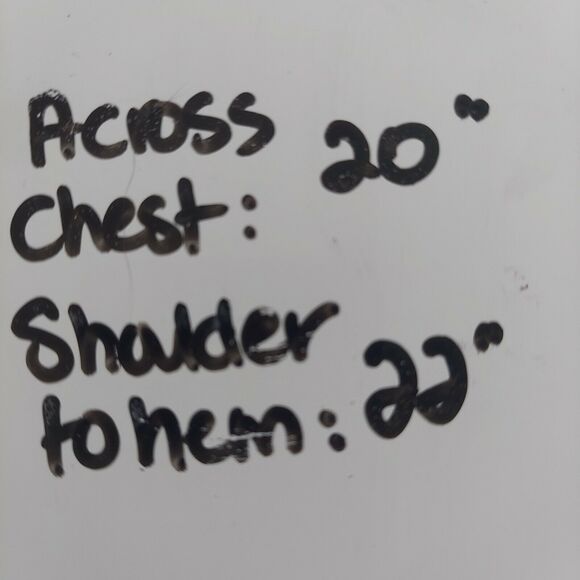 Across 20"
Chest:
Shoulder
to hem: 22"